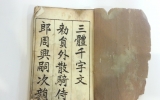 三體千字文
勑員外散騎侍
郎周興嗣次韻